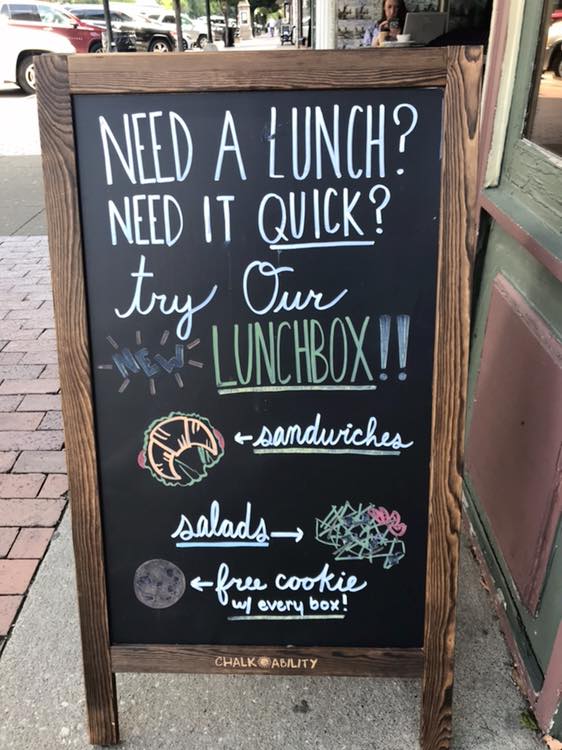 NEED A LUNCH?
NEED IT QUICK?
try Our
NEW LUNCHBOX!!
←sandwiches
salads→
←free cookie
w/ every box!
CHALK ABILITY